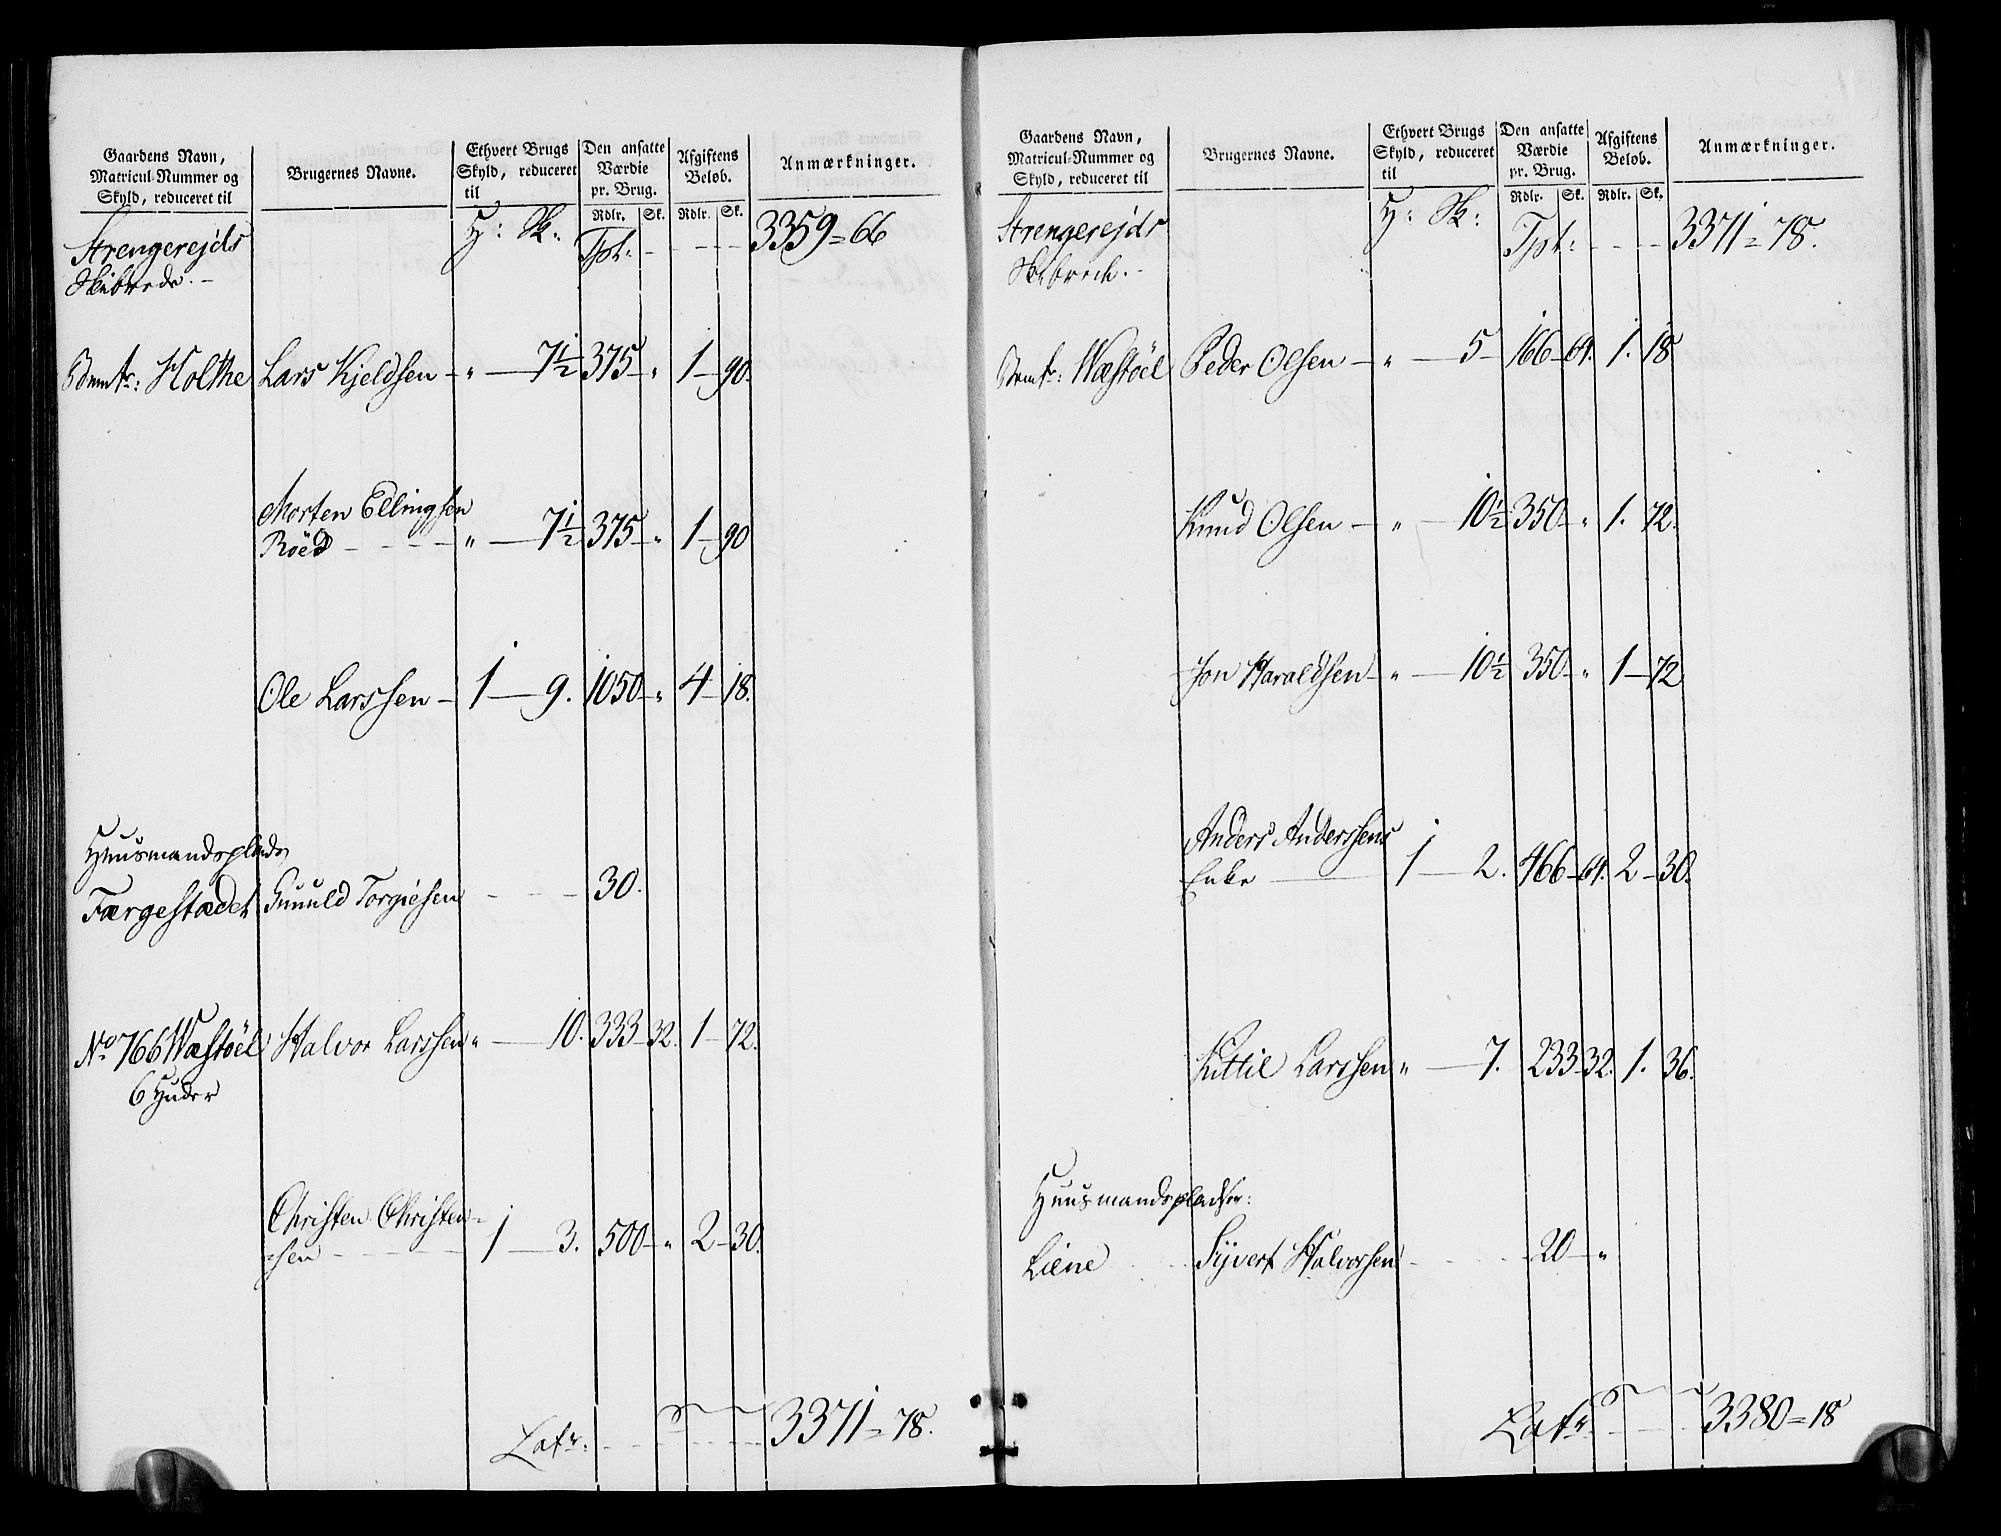 Gaardens Navn, Matricul-Nummer og Skyld, reduceret til
Brugernes Navne.
Ethvert Brugs Skyld, reduceret til
Den ansatte Værdie pr. Brug.
Afgiftens Beløb.
Anmærkninger.
Rdlr. Sk. Rdlr. Sk.
Strengerejds H: Sk: Tpt: - - - - 3359 = 66
Skibrede. -
Holthe Lars Kjeldsen - " - 7½ 375 - " 1 - 90.
Morten Ellingsen
Röed - - - - " - 7½ 375 - " 1 - 90
Ole Larssen - 1 - 9. 1050 - " 4 - 18.
Huusmandsplads
Færgestædet Gunuld Torgiesen - - - 30.
No 766 Wæstöel Halvor Larssen " - 10. 333 - 32. 1 - 72.
6 Huder
Christen Christen-
sen - - - - 1 - 3. 500 - " 2 - 30.
Latr: - - - - 3371 = 78.
Gaardens Navn, Matricul-Nummer og Skyld, reduceret til
Brugernes Navne.
Ethvert Brugs Skyld, reduceret til
Den ansatte Værdie pr. Brug.
Afgiftens Beløb.
Anmærkninger.
Rdlr. Sk. Rdlr. Sk.
Strengerejds H: Sk: Tpt: - - - - 3371 = 78.
Skibrede. -
Wæstöel Peder Olsen - " - 5 - 166 - 64. 1. 18
Knud Olsen - " - 10½ 350 - " 1. 72.
Jon Haraldsen - " - 10½ 350 - " 1 - 72
Anders Anderssens
Enke - 1 - 2. 466 - 64. 2 - 30.
Kittil Larssen " - 7. 233 - 32. 1. 36.
Huusmandspladser:
Liene Syvert Halvorsen - - - 20 - "
Latr: - - - - 3380 = 18